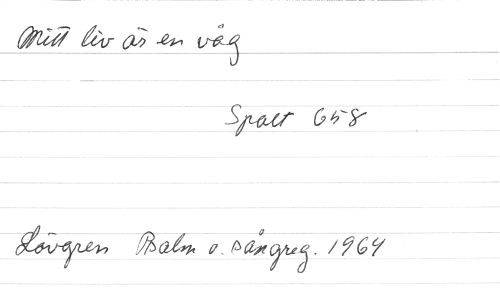 Mitt liv är en våg
Spalt 658
Lövgren Psalm o. sångreg. 1964